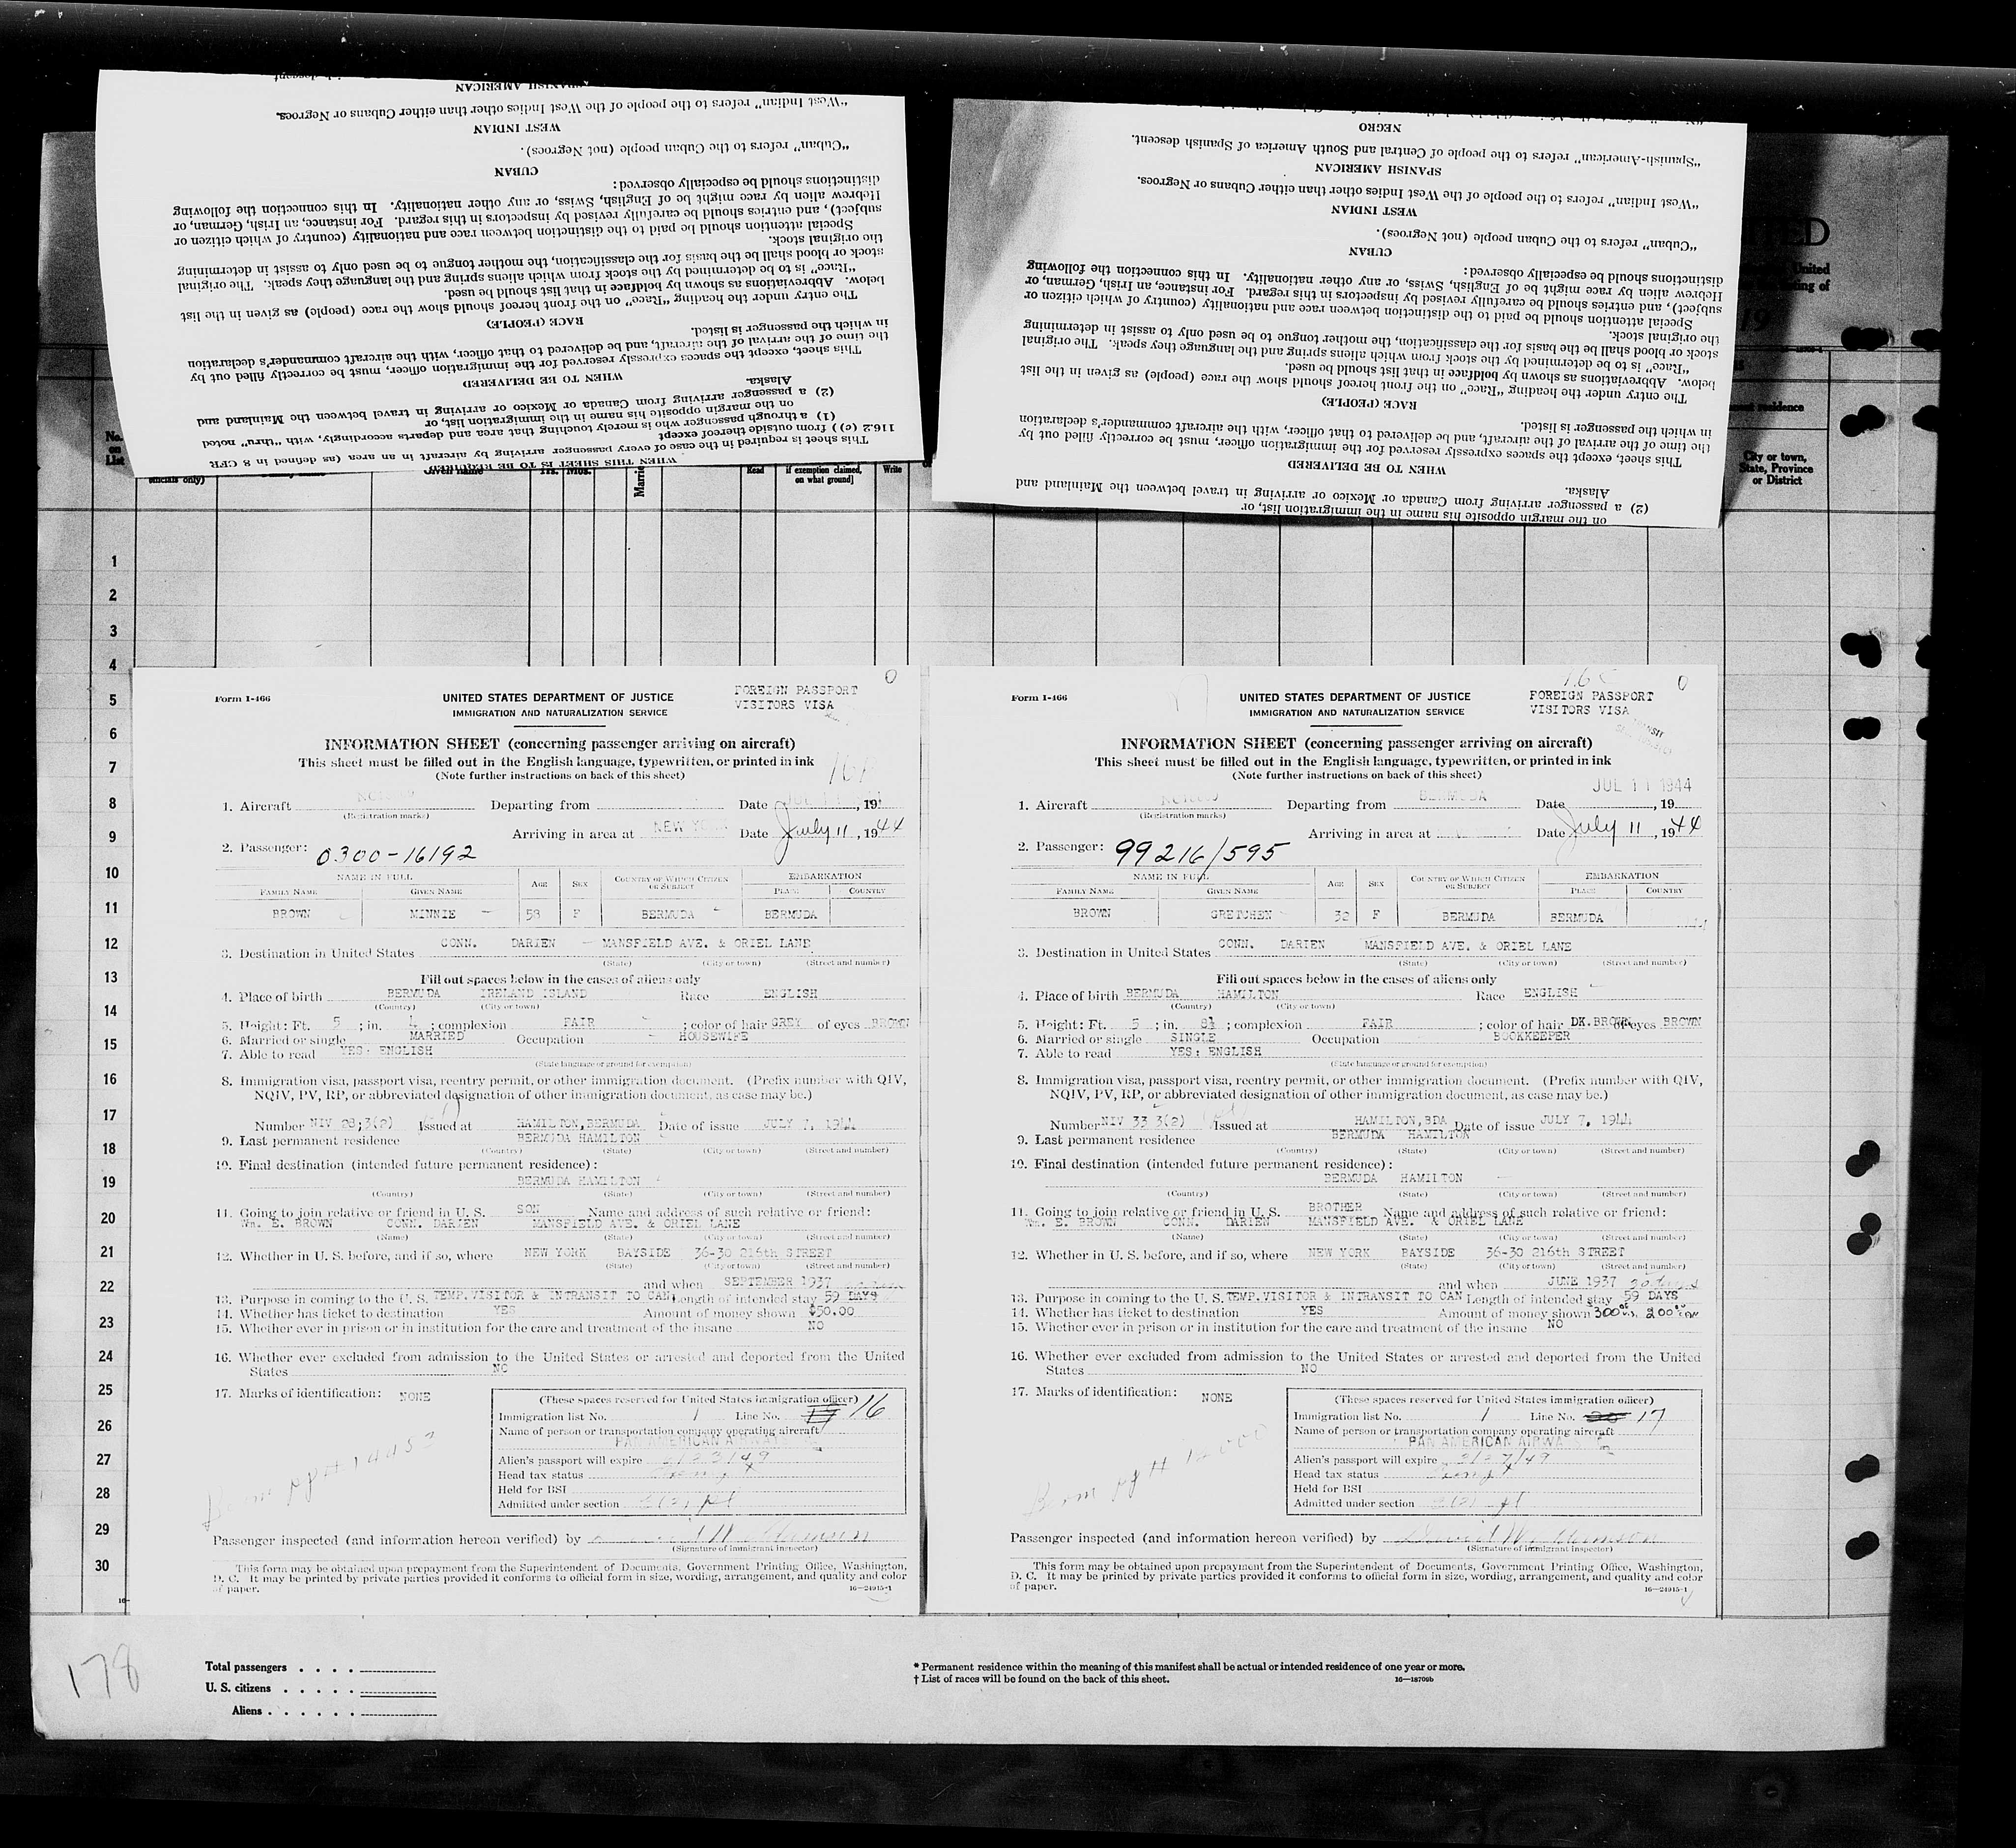 SPANISH AMERICAN
"West Indian" refers to the people of the West Indies other than either Cubans or Negroes.
WEST INDIAN
"Cuban" refers to the Cuban people (not Negroes).
CUBAN
distinctions should be especially observed:
Hebrew alien by race might be of English, Swiss, or any other nationality. In this connection the following
subject), and entries should be carefully revised by inspectors in this regard. For instance, an Irish, German, or
Special attention should be paid to the distinction between race and nationality (country of which citizen or
the original stock.
stock or blood shall be the basis for the classification, the mother tongue to be used only to assist in determining
"Race" is to be determined by the stock from which aliens spring and the language they speak. The original
below. Abbreviations as shown by boldface in that list should be used.
The entry under the heading "Race" on the front hereof should show the race (people) as given in the list
RACE (PEOPLE)
in which the passenger is listed.
the time of the arrival of the aircraft, and be delivered to that officer, with the aircraft commander's declaration
This sheet, except the spaces expressly reserved for the immigration officer, must be correctly filled out by
WHEN TO BE DELIVERED
Alaska.
(2) a passenger arriving from Canada or Mexico or arriving in travel between the Mainland and
on the margin opposite his name in the immigration list, or
(1) a through passenger who is merely touching that area and departs accordingly, with "thru" noted
116.2 (c) ) from outside thereof except
This sheet is required in the case of every passenger arriving by aircraft in an area (as defined in 8 CFR
WHEN THIS SHEET IS TO BE REQUIRED
NEGRO
"Spanish-American" refers to the people of Central and South America of Spanish descent.
SPANISH AMERICAN
"West Indian" refers to the people of the West Indies other than either Cubans or Negroes.
WEST INDIAN
"Cuban" refers to the Cuban people (not Negroes).
CUBAN
distinctions should be especially observed:
Hebrew alien by race might be of English, Swiss, or any other nationality. In this connection the following
subject), and entries should be carefully revised by inspectors in this regard. For instance, an Irish, German, or
Special attention should be paid to the distinction between race and nationality (country of which citizen or
the original stock.
stock or blood shall be the basis for the classification, the mother tongue to be used only to assist in determining
"Race" is to be determined by the stock from which aliens spring and the language they speak. The original
below. Abbreviations as shown by boldface in that list should be used.
The entry under the heading "Race" on the front hereof should show the race (people) as given in the list
RACE (PEOPLE)
in which the passenger is listed.
the time of the arrival of the aircraft, and be delivered to that officer, with the aircraft commander's declaration
This sheet, except the spaces expressly reserved for the immigration officer, must be correctly filled out by
WHEN TO BE DELIVERED
Alaska.
(2) a passenger arriving from Canada or Mexico or arriving in travel between the Mainland and
on the margin opposite his name in the immigration list, or
No. on List
Given name Yrs. Mos. Read if exemption claimed, on what ground] Write
residence
City or town, State, Province or District
1
2
3
4
5
6
7
8
9
10
11
12
13
14
15
16
17
18
19
20
21
22
23
24
25
26
27
28
29
30
Form I-466
UNITED STATES DEPARTMENT OF JUSTICE
IMMIGRATION AND NATURALIZATION SERVICE
FOREIGN PASSPORT
VISITORS VISA
0
INFORMATION SHEET (concerning passenger arriving on aircraft)
This sheet must be filled out in the English language, typewritten, or printed in ink
(Note further instructions on back of this sheet)
1. Aircraft Departing from Date , 19
(Registration marks)
Arriving in area at NEW YORK Date July 11, 1944
2. Passenger: 0300-16192
NAME IN FULL AGE SEX COUNTRY OF WHICH CITIZEN OR SUBJECT EMBARKATION
FAMILY NAME GIVEN NAME PLACE COUNTRY
BROWN MINNIE 58 F BERMUDA BERMUDA
3. Destination in United States CONN. DARIEN MANSFIELD AVE. & ORIEL LANE
(State) (City or town) (Street and number)
Fill out spaces below in the cases of aliens only
4. Place of birth BERMUDA IRELAND ISLAND Race ENGLISH
(Country) (City or town)
5. Height: Ft. 5 ; in. 4 ; complexion FAIR ; color of hair GREY of eyes BROWN
6. Married or single MARRIED Occupation HOUSEWIFE
7. Able to read YES: ENGLISH
(State language or ground for exemption)
8. Immigration visa, passport visa, reentry permit, or other immigration document. (Prefix number with QIV,
NQIV, PV, RP, or abbreviated designation of other immigration document, as case may be.)
Number NIV 28;3(2) Issued at HAMILTON,BERMUDA Date of issue JULY 7, 1944
9. Last permanent residence BERMUDA HAMILTON
(Country) (State) (City or town) (Street and number)
10. Final destination (intended future permanent residence):
BERMUDA HAMILTON
(Country) (State) (City or town) (Street and number)
11. Going to join relative or friend in U. S. SON Name and address of such relative or friend:
Wm. E. BROWN CONN. DARIEN MANSFIELD AVE. & ORIEL LANE
(Name) (State) (City or town) (Street and number)
12. Whether in U. S. before, and if so, where NEW YORK BAYSIDE 36-30 216th STREET
(State) (City or town) (Street and number)
and when SEPTEMBER 1937
13. Purpose in coming to the U. S. TEMP.VISITOR & INTRANSIT TO CAN. Length of intended stay 59 DAYS
14. Whether has ticket to destination YES Amount of money shown $50.00
15. Whether ever in prison or in institution for the care and treatment of the insane NO
16. Whether ever excluded from admission to the United States or arrested and deported from the United
States NO
17. Marks of identification: NONE
(These spaces reserved for United States immigration officer)
Immigration list No. 1 Line No. 16
Name of person or transportation company operating aircraft
PAN AMERICAN AIRWAYS
Alien's passport will expire
Head tax status Exempt
Held for BSI
Admitted under section 3(2)
Passenger inspected (and information hereon verified) by
(Signature of immigrant inspector)
This form may be obtained upon prepayment from the Superintendent of Documents, Government Printing Office, Washington,
D. C. It may be printed by private parties provided it conforms to official form in size, wording, arrangement, and quality and color
of paper.
16—24915-1
Form I-466
UNITED STATES DEPARTMENT OF JUSTICE
IMMIGRATION AND NATURALIZATION SERVICE
FOREIGN PASSPORT
VISITORS VISA
0
INFORMATION SHEET (concerning passenger arriving on aircraft)
This sheet must be filled out in the English language, typewritten, or printed in ink
(Note further instructions on back of this sheet)
JUL 11 1944
1. Aircraft Departing from BERMUDA Date , 19
(Registration marks)
Arriving in area at Date July 11, 1944
2. Passenger: 99216/595
NAME IN FULL AGE SEX COUNTRY OF WHICH CITIZEN OR SUBJECT EMBARKATION
FAMILY NAME GIVEN NAME PLACE COUNTRY
BROWN GRETCHEN 30 F BERMUDA BERMUDA
3. Destination in United States CONN. DARIEN MANSFIELD AVE. & ORIEL LANE
(State) (City or town) (Street and number)
Fill out spaces below in the cases of aliens only
4. Place of birth BERMUDA HAMILTON Race ENGLISH
(Country) (City or town)
5. Height: Ft. 5 ; in. 8½ ; complexion FAIR ; color of hair DK.BROWN of eyes BROWN
6. Married or single SINGLE Occupation BOOKKEEPER
7. Able to read YES: ENGLISH
(State language or ground for exemption)
8. Immigration visa, passport visa, reentry permit, or other immigration document. (Prefix number with QIV,
NQIV, PV, RP, or abbreviated designation of other immigration document, as case may be.)
Number NIV 33 3(2) Issued at HAMILTON,BDA Date of issue JULY 7, 1944
9. Last permanent residence BERMUDA HAMILTON
(Country) (State) (City or town) (Street and number)
10. Final destination (intended future permanent residence):
BERMUDA HAMILTON
(Country) (State) (City or town) (Street and number)
11. Going to join relative or friend in U. S. BROTHER Name and address of such relative or friend:
Wm. E. BROWN CONN. DARIEN MANSFIELD AVE. & ORIEL LANE
(Name) (State) (City or town) (Street and number)
12. Whether in U. S. before, and if so, where NEW YORK BAYSIDE 36-30 216th STREET
(State) (City or town) (Street and number)
and when JUNE 1937
13. Purpose in coming to the U. S. TEMP.VISITOR & INTRANSIT TO CAN Length of intended stay 59 DAYS
14. Whether has ticket to destination YES Amount of money shown
15. Whether ever in prison or in institution for the care and treatment of the insane NO
16. Whether ever excluded from admission to the United States or arrested and deported from the United
States NO
17. Marks of identification: NONE
(These spaces reserved for United States immigration officer)
Immigration list No. 1 Line No. 17
Name of person or transportation company operating aircraft
PAN AMERICAN AIRWA
Alien's passport will expire
Head tax status Exempt
Held for BSI
Admitted under section 3(2)
Passenger inspected (and information hereon verified) by
(Signature of immigrant inspector)
This form may be obtained upon prepayment from the Superintendent of Documents, Government Printing Office, Washington,
D. C. It may be printed by private parties provided it conforms to official form in size, wording, arrangement, and quality and color
of paper.
16—24915-1
178
Total passengers . . . .
U. S. citizens . . . . .
Aliens . . . . . .
* Permanent residence within the meaning of this manifest shall be actual or intended residence of one year or more.
† List of races will be found on the back of this sheet.
16—18709b